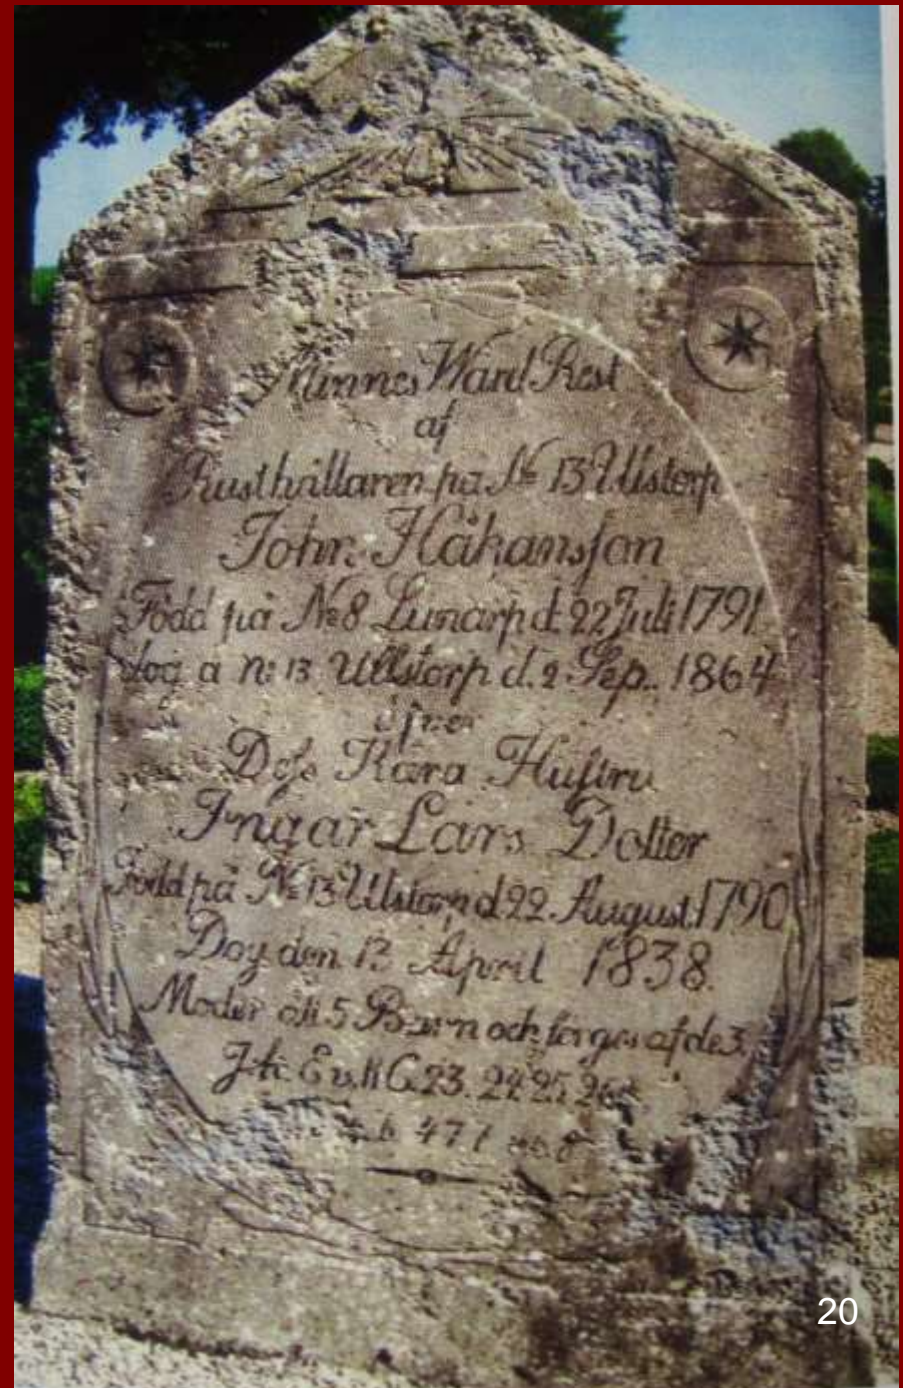 Minnes Ward Rest
af
Rusthållaren på No 13 Ulstorp
John Håkansson
Född på No 8 Lunarp d. 22 Juli 1791
dog a n: 13 Ullstorp d. 2 Sep. 1864
öfver
Dess Kära Hustru
Ingar Lars Dotter
Född på No 13 Ulstorp d 22 August 1790
Doy den 13 April 1838.
Moder till 5 Barn och sörges af de 3,
C. 23. 24. 25. 26
47 1
20